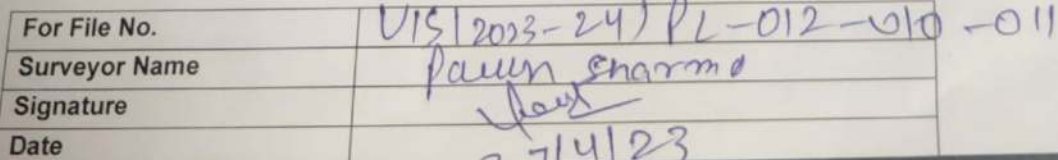 For File No. VIS(2023-24)PL-012-010-011
Surveyor Name Pawn Sharma
Signature
Date 7/4/23